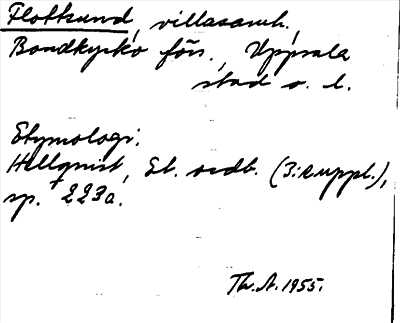 Flottsund, villasamh.
Bondkyrko förs., Uppsala
stad o. l.
Etymologi:
Hellquist, Et. ordb. (3:e uppl.),
sp. 223a.
Th. A. 1955.